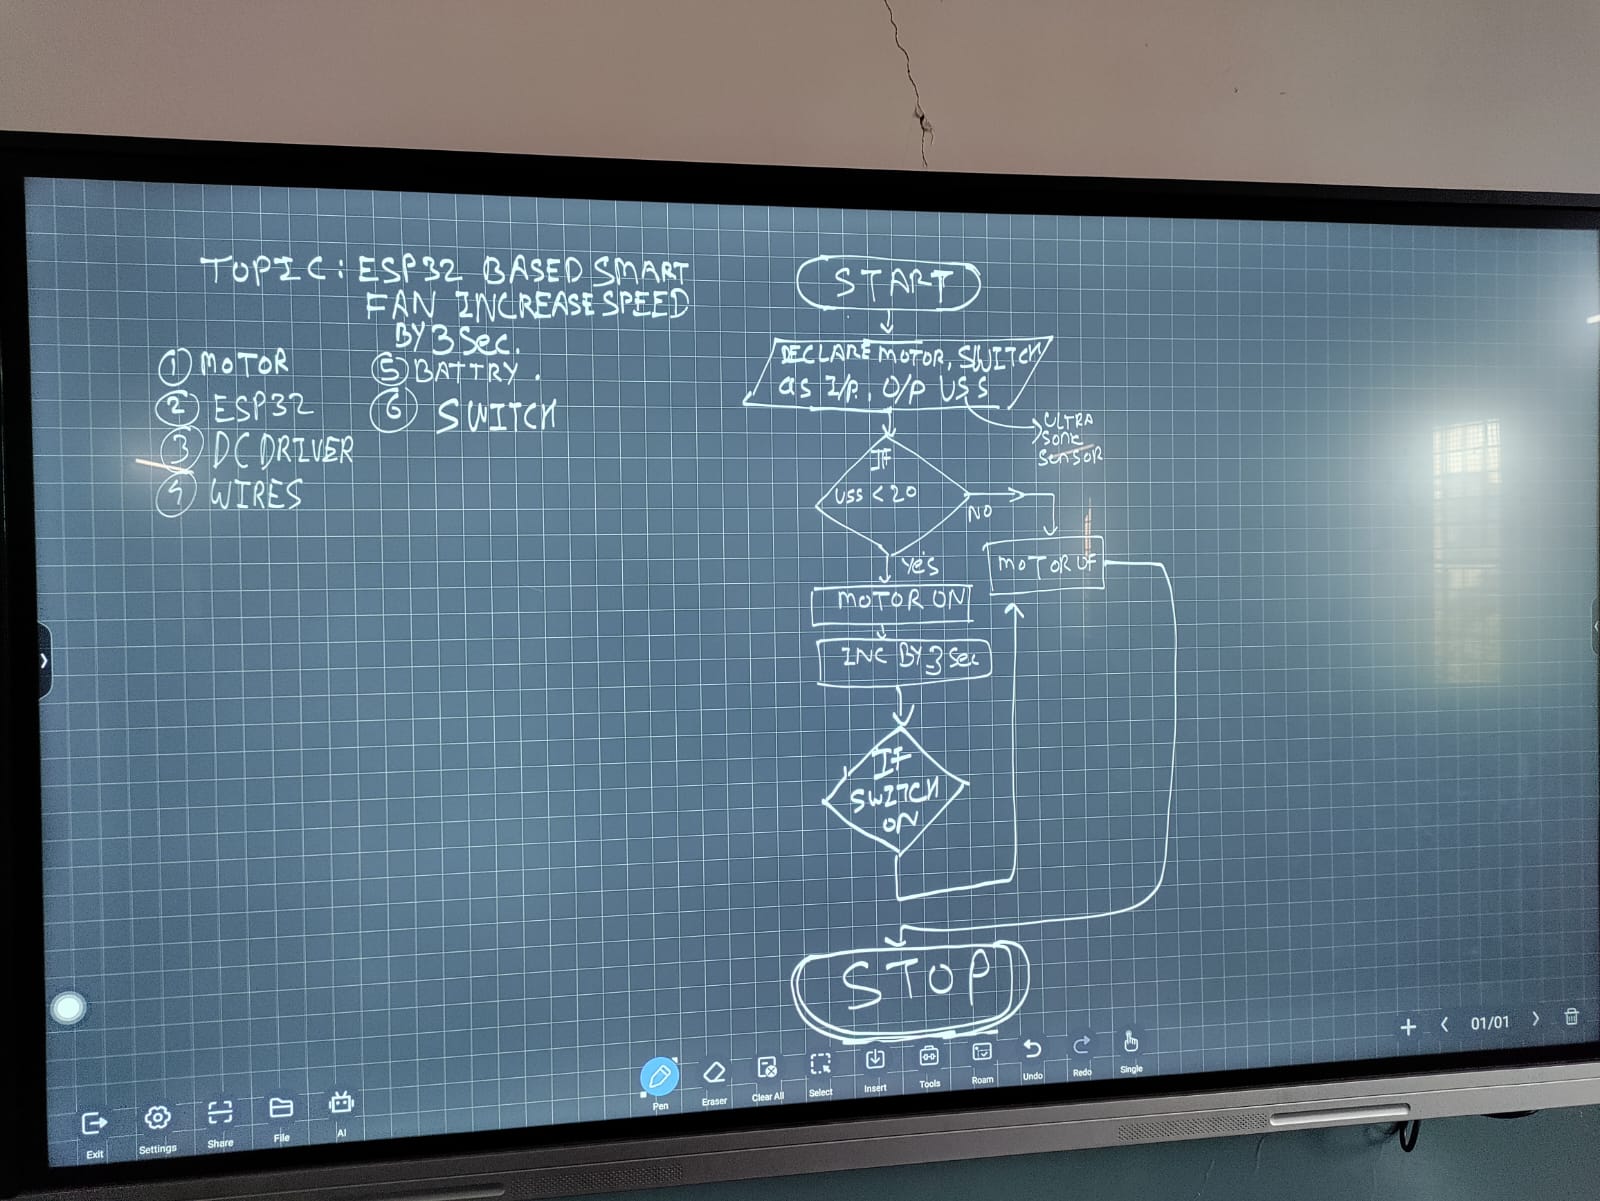 TOPIC: ESP32 BASED SMART
FAN INCREASE SPEED
BY 3 Sec.
① MOTOR
② ESP32
③ DC DRIVER
④ WIRES
⑤ BATTRY.
⑥ SWITCH
START
DECLARE MOTOR, SWITCH
as I/P, O/P USS
ULTRA
SONC
SenSOR
IF
USS < 20
NO
Yes
MOTOR OF
MOTOR ON
INC BY 3 Sec
IF
SWITCH
ON
STOP
01/01
Pen
Eraser
Clear All
Select
Insert
Tools
Roam
Undo
Redo
Single
Exit
Settings
Share
File
AI